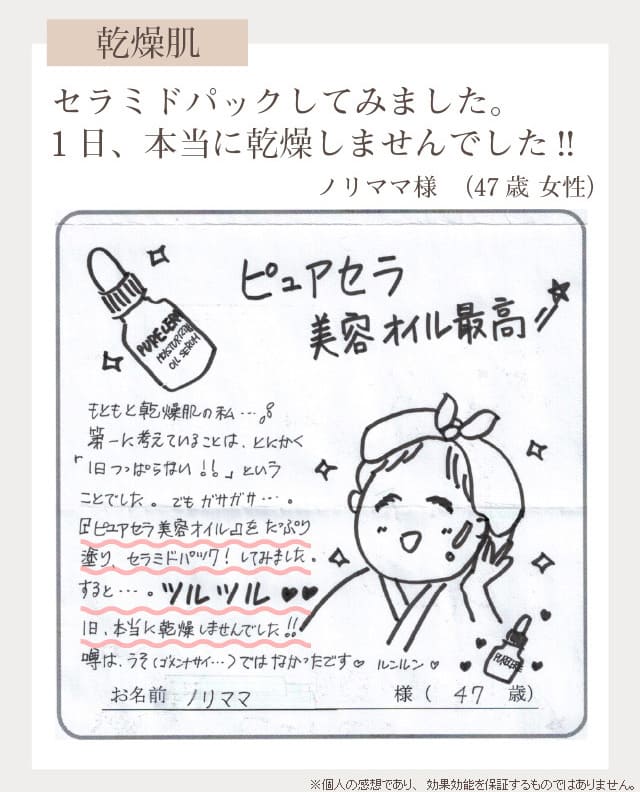 乾燥肌
セラミドパックしてみました。
1日、本当に乾燥しませんでした!!
ノリママ様 (47歳 女性)
ピュアセラ
美容オイル最高!!
PURECERA
MOISTURIZING
OIL SERUM
もともと乾燥肌の私…。
第一に考えていることは、とにかく
「1日つっぱらない!!」という
ことでした。でもガサガサ…。
『ピュアセラ美容オイル』をたっぷり
塗り、セラミドパック!してみました。
すると…。ツルツル♥♥
1日、本当に乾燥しませんでした!!
噂は、うそ(ゴメンナサイ…)ではなかったです♡ ルンルン♡
PURECERA
お名前 ノリママ 様( 47 歳)
※個人の感想であり、効果効能を保証するものではありません。